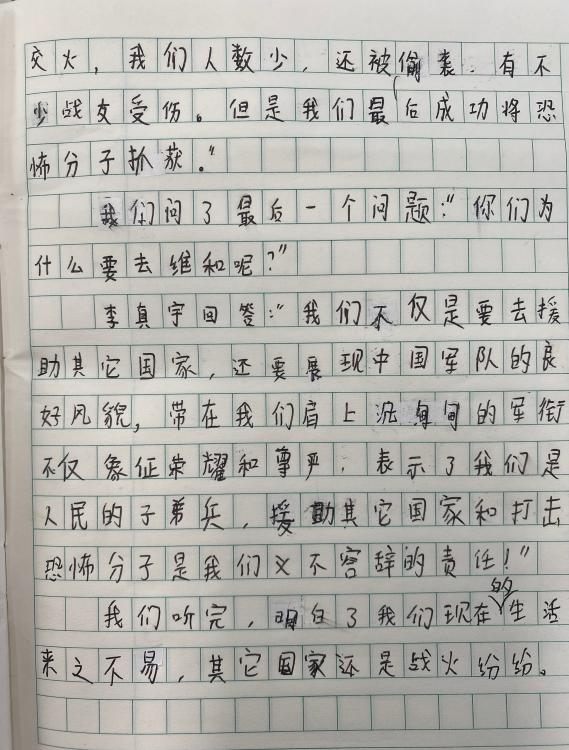 交火，我们人数少，还被偷袭．有不
少战友受伤。但是我们最后成功将恐
怖分子抓获。"
我们问了最后一个问题："你们为
什么要去维和呢？"
李真宇回答："我们不仅是要去援
助其它国家，还要展现中国军队的良
好风貌，带在我们肩上沉甸甸的军衔
不仅象征荣耀和尊严．表示了我们是
人民的子弟兵，援助其它国家和打击
恐怖分子是我们义不容辞的责任！"
我们听完，明白了我们现在的生活
来之不易，其它国家还是战火纷纷。